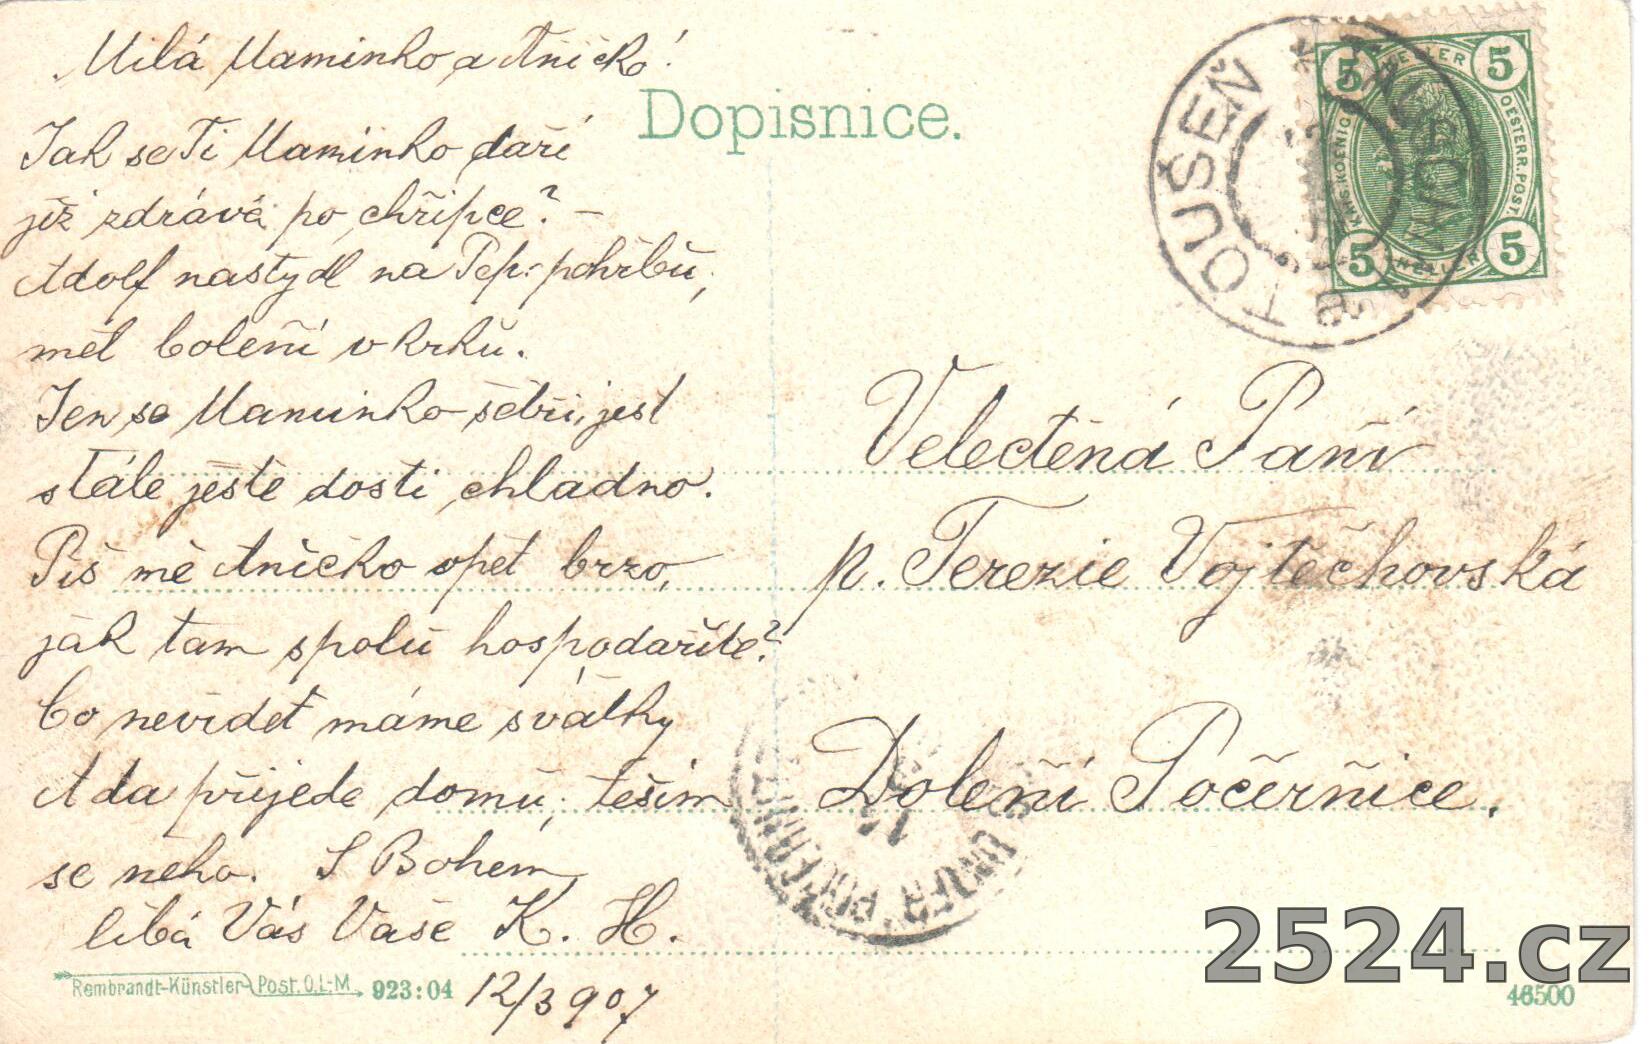 Milá Maminko a Aničko!
Dopisnice.
Jak se Ti Maminko daří
již zdráva po chřipce? –
Adolf nastydl na Pep: pohřbu,
měl bolení v krku.
Jen se Maminko šetři, jest
stále ještě dosti chladno.
Piš mě Aničko opět brzo,
jak tam spolu hospodaříte?
Co nevidět máme svátky
Ada přijede domu, těším
se neho. S Bohem
líbá Vás Vaše K. H.
12/3 907
Rembrandt-Künstler-Post. O.L-M.
923:04
TOUŠEŇ
5 HELLER 5
KAIS. KOENIG. OESTERR. POST.
5 HELLER 5
Veledtěná Paní
p. Terezie Vojtěchovská
Dolení Počernice.
2524.cz
46500